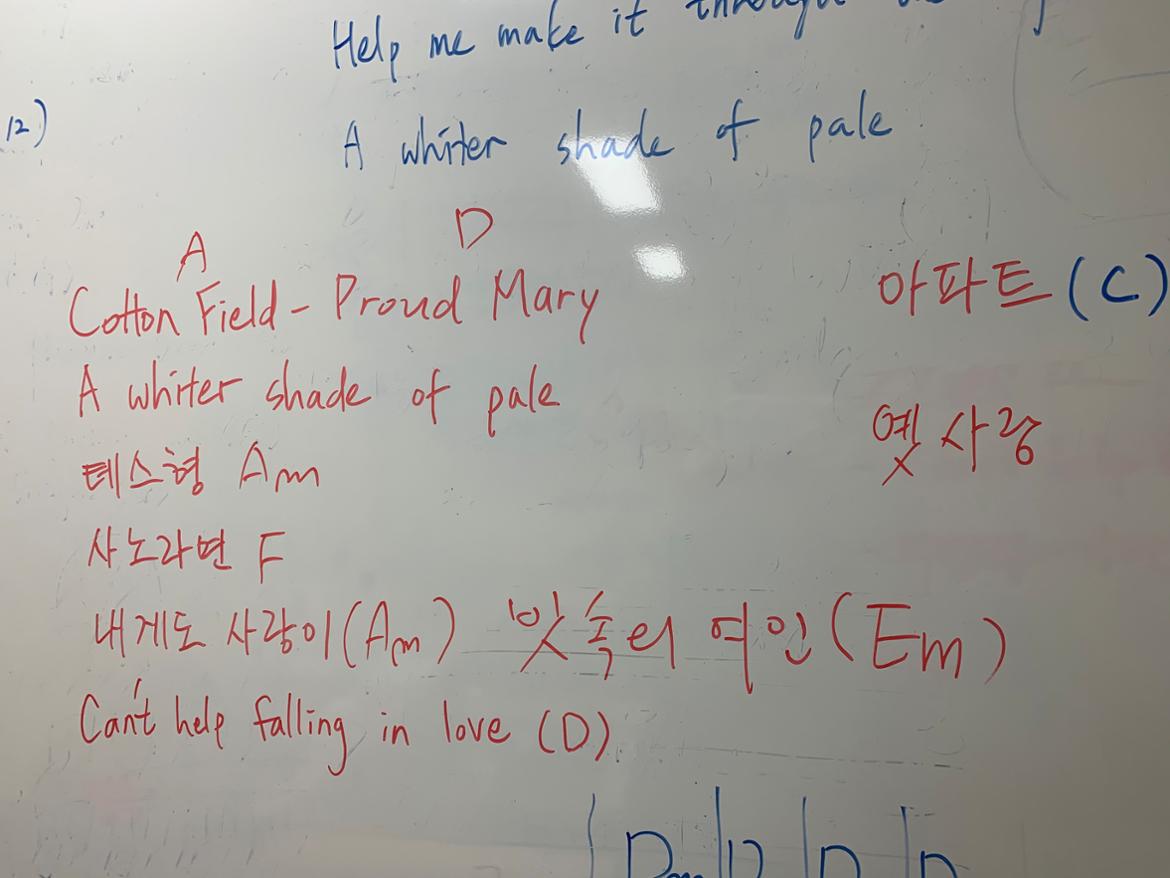 Help me make it through
12)
A whiter shade of pale
A D
Cotton Field - Proud Mary
아파트 (C)
A whiter shade of pale
옛사랑
테스형 Am
사노라면 F
내게도 사랑이 (Am) 빗속의 여인 (Em)
Can't help falling in love (D)